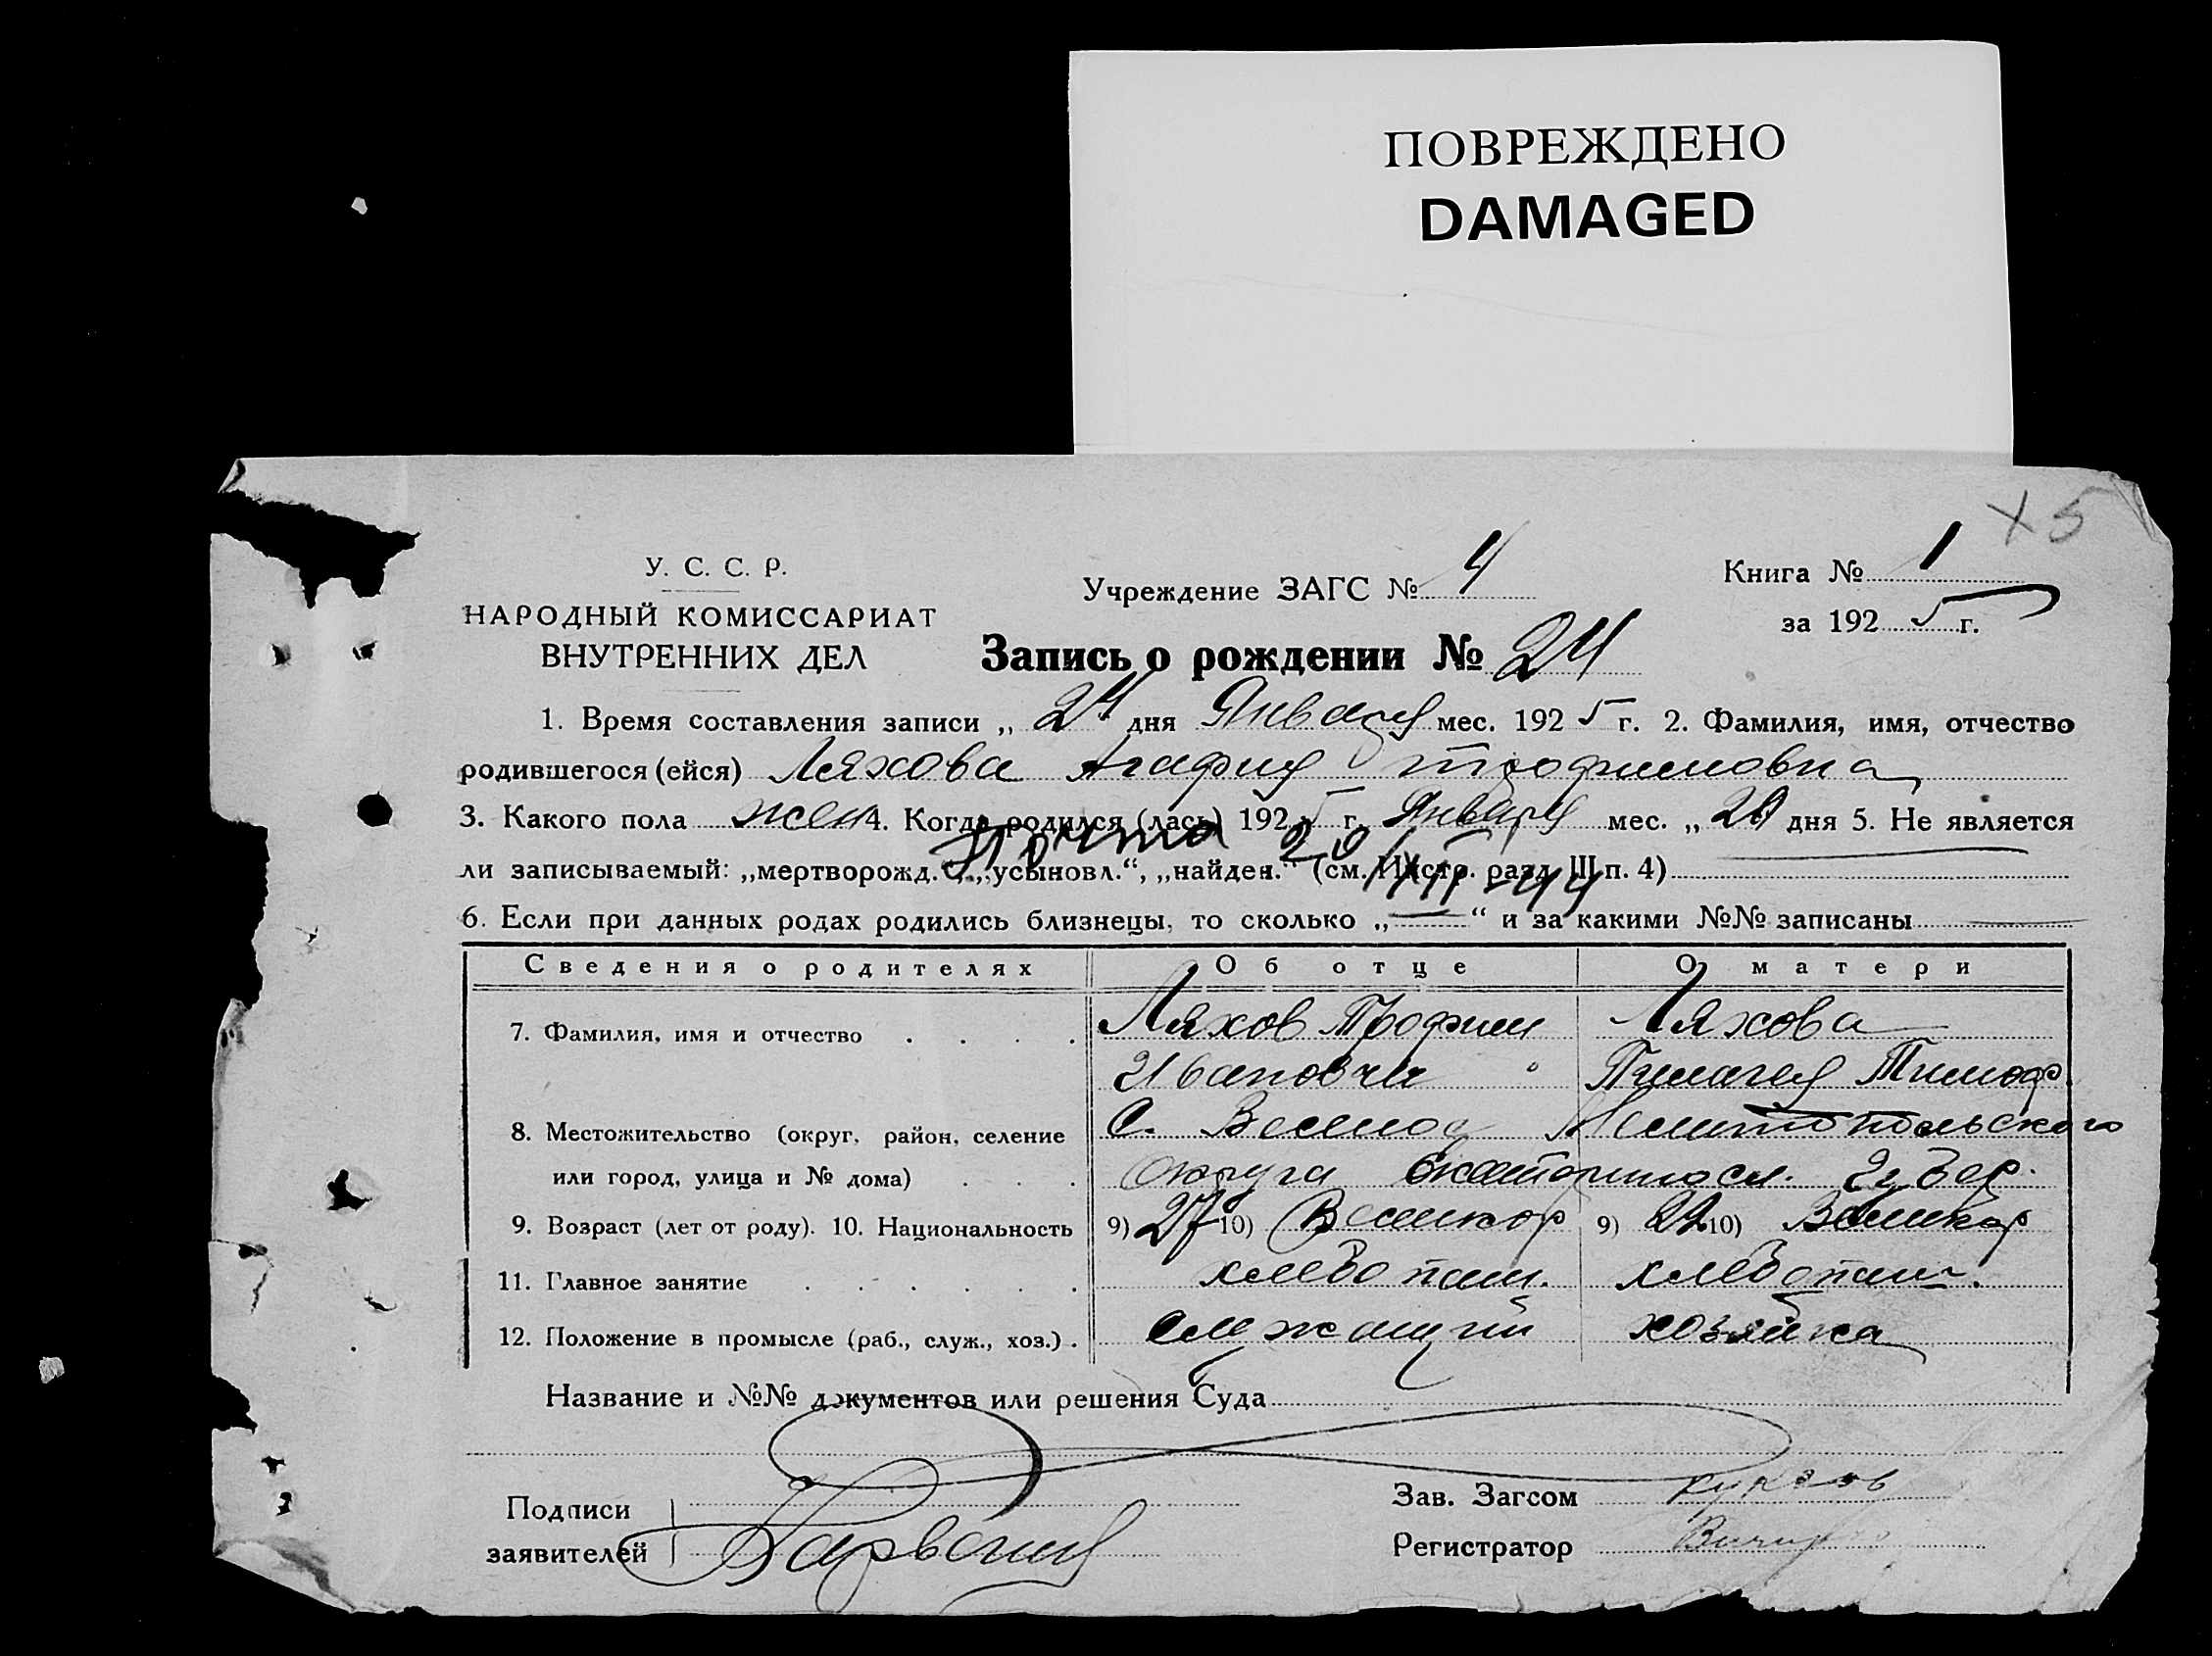 ПОВРЕЖДЕНО
DAMAGED
х 5
У. С. С. Р.
НАРОДНЫЙ КОМИССАРИАТ
ВНУТРЕННИХ ДЕЛ
Учреждение ЗАГС № 4
Книга № 1
за 192 5 г.
Запись о рождении № 24
1. Время составления записи „ 24 дня Января мес. 192 5 г. 2. Фамилия, имя, отчество
родившегося (ейся) Ляхова Агафия Трофимовна
3. Какого пола жен 4. Когда родился (лась) 192 5 г. Января мес. „ дня 5. Не является
ли записываемый: „мертворожд.“, „усыновл.“, „найден.“ (см. Инстр. разд. III п. 4)
6. Если при данных родах родились близнецы, то сколько „ — “ и за какими №№ записаны —
Сведения о родителях Об отце О матери
7. Фамилия, имя и отчество . . . . Ляхов Трофим Ляхова
Иванович Тимоф.
8. Местожительство (округ, район, селение С. Мелитопольского
или город, улица и № дома) . . . округа Екатериносл. Губер.
9. Возраст (лет от роду). 10. Национальность 9) 27 10) Великор 9) 10) Великор
11. Главное занятие . . . . . . хлебопаш. хлебопаш.
12. Положение в промысле (раб., служ., хоз.) . служащий хозяйка
Название и №№ документов или решения Суда
Подписи
заявителей
Зав. Загсом
Регистратор